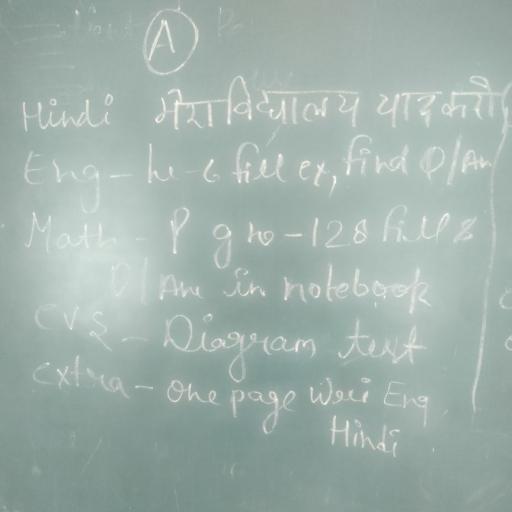 A
Hindi मेरा विद्यालय याद करो
Eng - lu-6 fill ex, find Q/An
Math - P g no - 128 fill &
Q/Ans in notebook
EVS - Diagram test
Extra - one page Wri Eng
Hindi